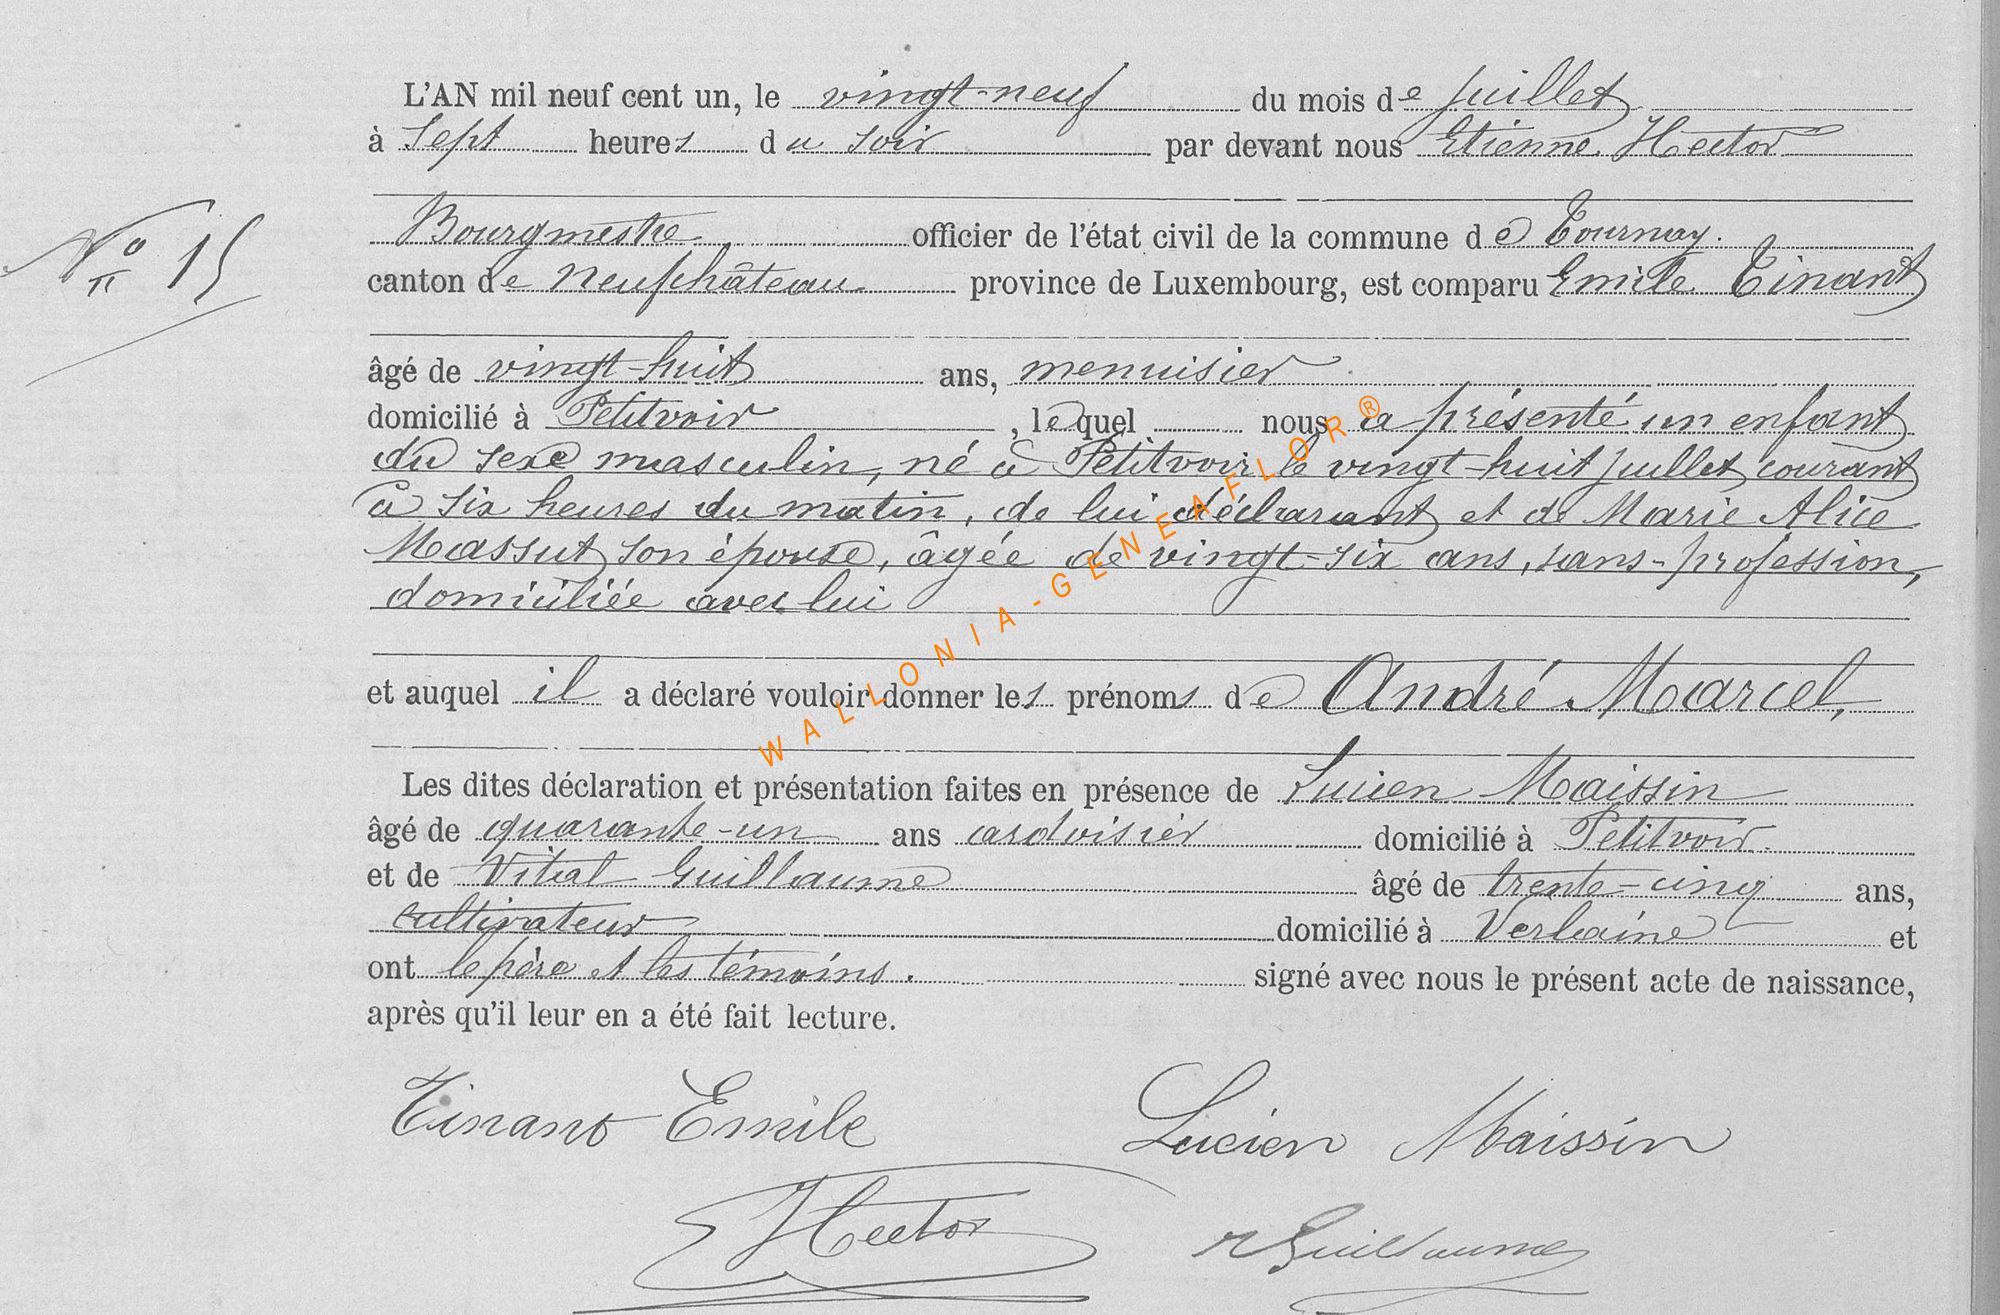 L'AN mil neuf cent un, le vingt-neuf du mois de juillet
à sept heures du soir par devant nous Etienne Hector
Bourgmestre officier de l'état civil de la commune de Tournay.
N° 15
canton de Neufchâteau province de Luxembourg, est comparu Emile Tinant
âgé de vingt-huit ans, menuisier
domicilié à Petitvoir, lequel nous a présenté un enfant
du sexe masculin, né à Petitvoir le vingt-huit juillet courant
à six heures du matin, de lui déclarant et de Marie Alice
Massut son épouse, âgée de vingt-six ans, sans-profession,
domiciliée avec lui
et auquel il a déclaré vouloir donner les prénoms de André Marcel,
Les dites déclaration et présentation faites en présence de Lucien Maissin
âgé de quarante-un ans ardoisier domicilié à Petitvoir.
et de Vital Guillaume âgé de trente-cinq ans,
cultivateur domicilié à Verlaine et
ont le père et les témoins. signé avec nous le présent acte de naissance,
après qu'il leur en a été fait lecture.
Tinant Emile Lucien Maissin
Hector V Guillaume
WALLONIA-GENEAFLOR®